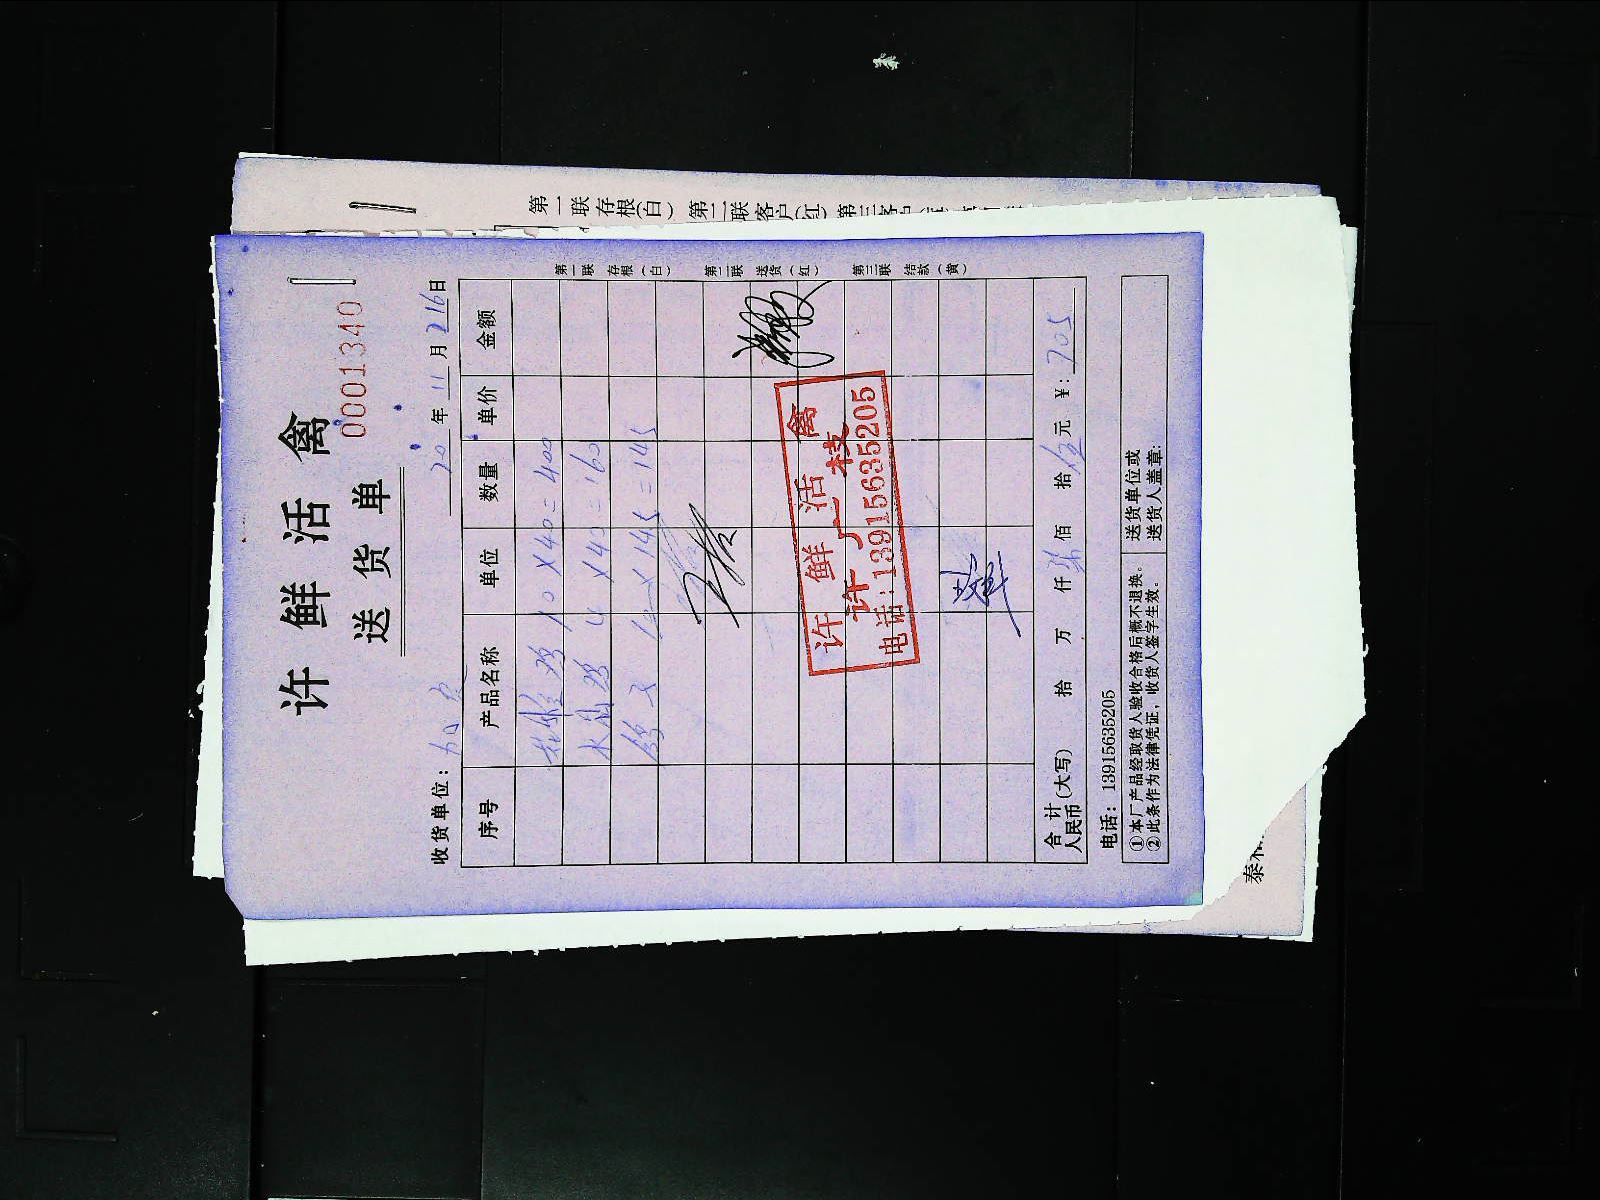 第一联存根(白) 第二联客户(红)
许鲜活禽
0001340
送货单
收货单位:
20 年 11 月 26 日
序号 产品名称 单位 数量 单价 金额
鸡 10 X 40 = 400
水 鸡 4 X 40 = 160
鸽 X 145 = 145
第一联 存根(白) 第二联 送货(红) 第三联 结款(黄)
许鲜活禽
许 广 枝
电话:13915635205
合计 人民币(大写) 拾 万 仟 柒 佰 拾 伍 元 ¥: 705
电话: 13915635205
①本厂产品经取货人验收合格后概不退换。
②此条作为法律凭证,收货人签字生效。
送货单位或
送货人盖章:
泰